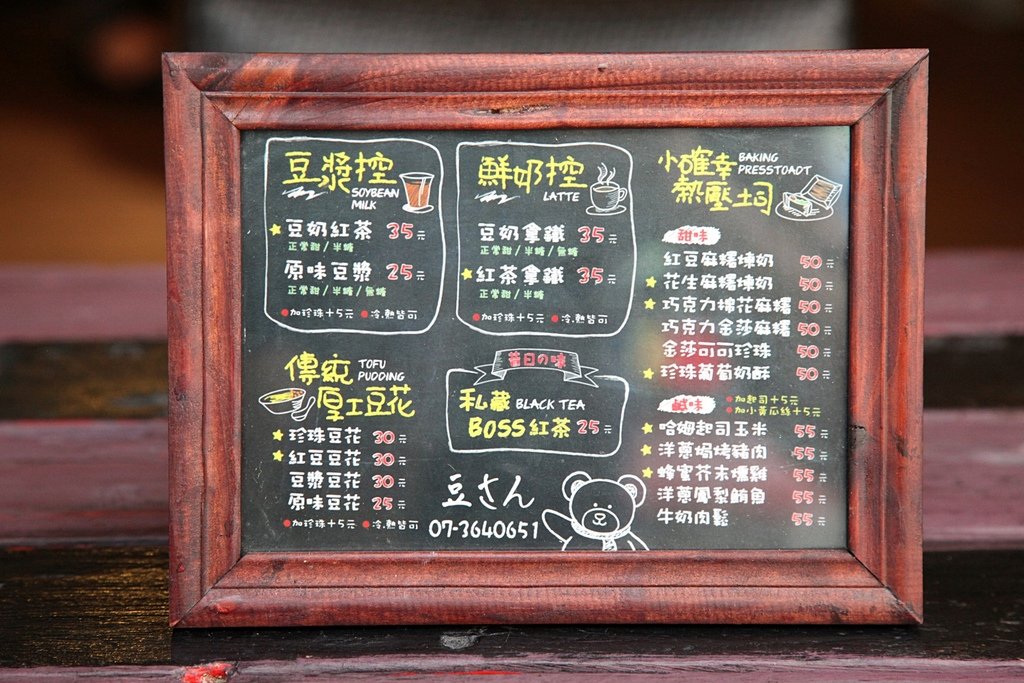 豆漿控
SOYBEAN
MILK
豆奶紅茶 35元
正常甜/半糖
原味豆漿 25元
正常甜/半糖/無糖
加珍珠+5元 冷.熱皆可
鮮奶控
LATTE
豆奶拿鐵 35元
正常甜/半糖
紅茶拿鐵 35元
正常甜/半糖
加珍珠+5元 冷.熱皆可
小確幸
BAKING
PRESSTOADT
熱壓土司
甜味
紅豆麻糬煉奶 50元
花生麻糬煉奶 50元
巧克力棉花麻糬 50元
巧克力金莎麻糬 50元
金莎可可珍珠 50元
珍珠葡萄奶酥 50元
鹹味
加起司+5元
加小黃瓜絲+5元
哈姆起司玉米 55元
洋蔥焗烤豬肉 55元
蜂蜜芥末燻雞 55元
洋蔥鳳梨鮪魚 55元
牛奶肉鬆 55元
傳統
TOFU
PUDDING
厚工豆花
珍珠豆花 30元
紅豆豆花 30元
豆漿豆花 30元
原味豆花 25元
加珍珠+5元 冷.熱皆可
昔日の味
私藏 BLACK TEA
BOSS紅茶 25元
豆さん
07-3640651